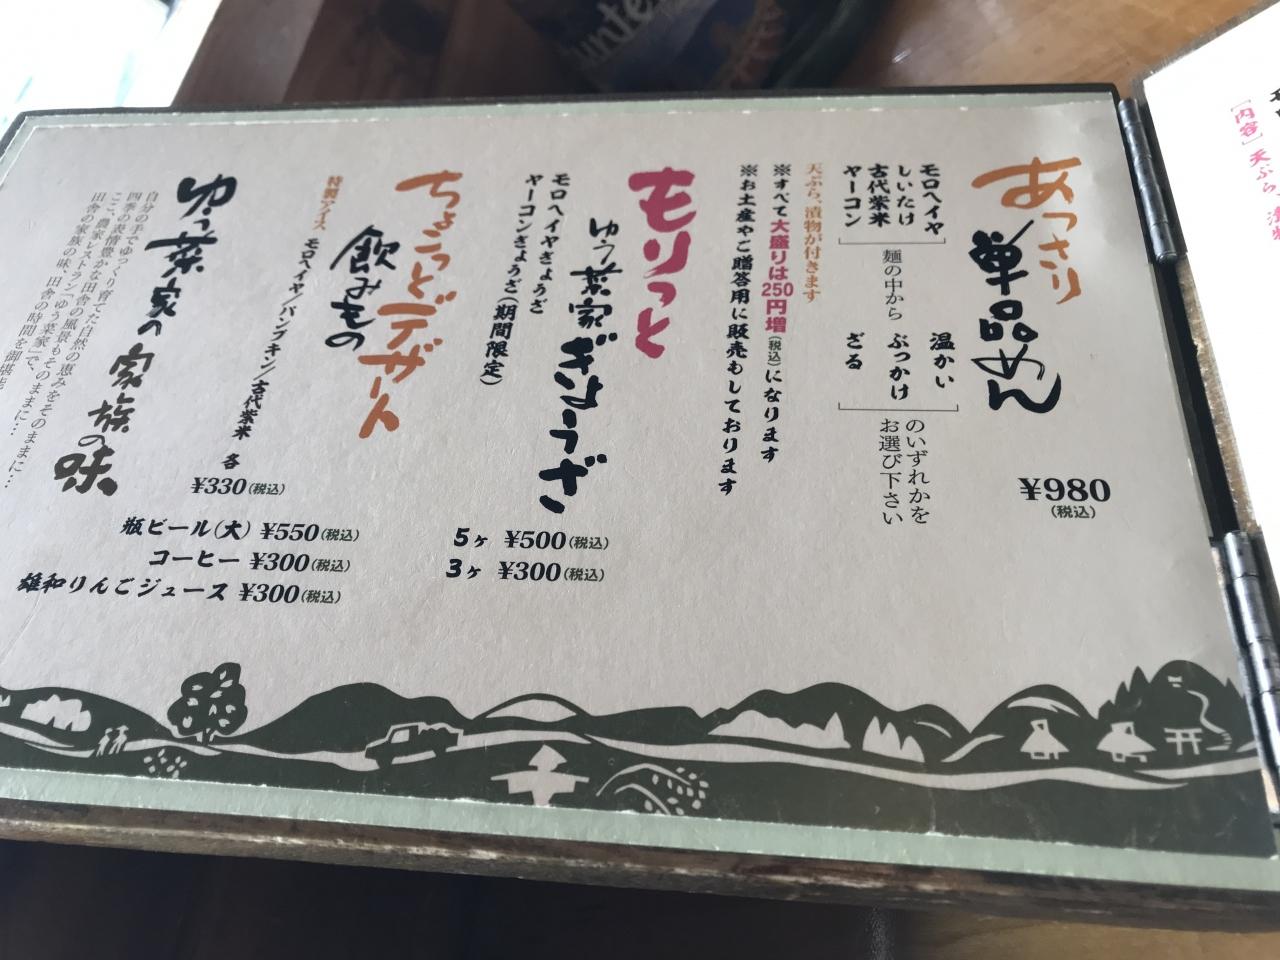 あっさり
単品めん
¥980
(税込)
モロヘイヤ
しいたけ
古代紫米
ヤーコン
麺の中から
温かい
ぶっかけ
ざる
のいずれかを
お選び下さい
天ぷら、漬物が付きます
※すべて大盛りは250円増(税込)になります
※お土産やご贈答用に販売もしております
もりっと
ゆう菜家ぎょうざ
モロヘイヤぎょうざ
ヤーコンぎょうざ(期間限定)
5ヶ ¥500(税込)
3ヶ ¥300(税込)
ちょこっとデザート
飲みもの
特製アイス モロヘイヤ/パンプキン/古代紫米 各
¥330(税込)
瓶ビール(大) ¥550(税込)
コーヒー ¥300(税込)
雄和りんごジュース ¥300(税込)
ゆう菜家の家族の味
自分の手でゆっくり育てた自然の恵みをそのままに…
四季の表情豊かな田舎の風景もそのままに…
ここ、農家レストラン「ゆう菜家」で、
田舎の家族の味、田舎の時間を御堪能
[内容] 天ぷら、漬物